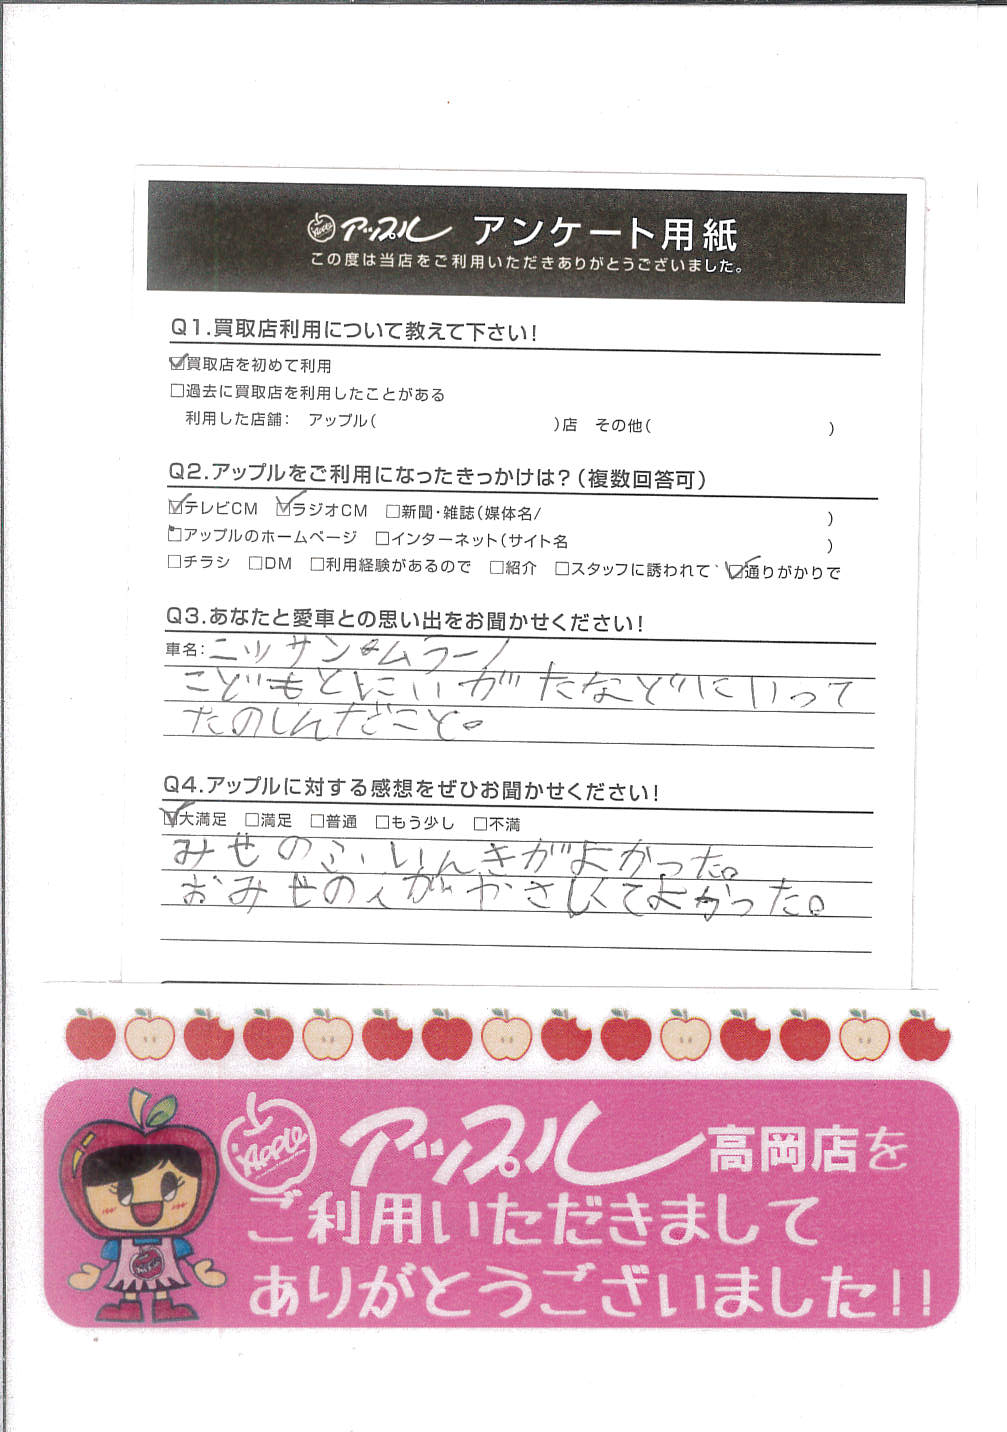 Apple アップル アンケート用紙
この度は当店をご利用いただきありがとうございました。
Q1.買取店利用について教えて下さい!
☑買取店を初めて利用
□過去に買取店を利用したことがある
利用した店舗: アップル( )店 その他( )
Q2.アップルをご利用になったきっかけは?(複数回答可)
☑テレビCM ☑ラジオCM □新聞・雑誌(媒体名/ )
□アップルのホームページ □インターネット(サイト名 )
□チラシ □DM □利用経験があるので □紹介 □スタッフに誘われて ☑通りがかりで
Q3.あなたと愛車との思い出をお聞かせください!
車名:ニッサン ムラーノ
こどもとにいがたなどにいって
たのしんだこと。
Q4.アップルに対する感想をぜひお聞かせください!
☑大満足 □満足 □普通 □もう少し □不満
みせのふいんきがよかった。
おみせの人がやさしくてよかった。
Apple アップル 高岡店を
ご利用いただきまして
ありがとうございました!!